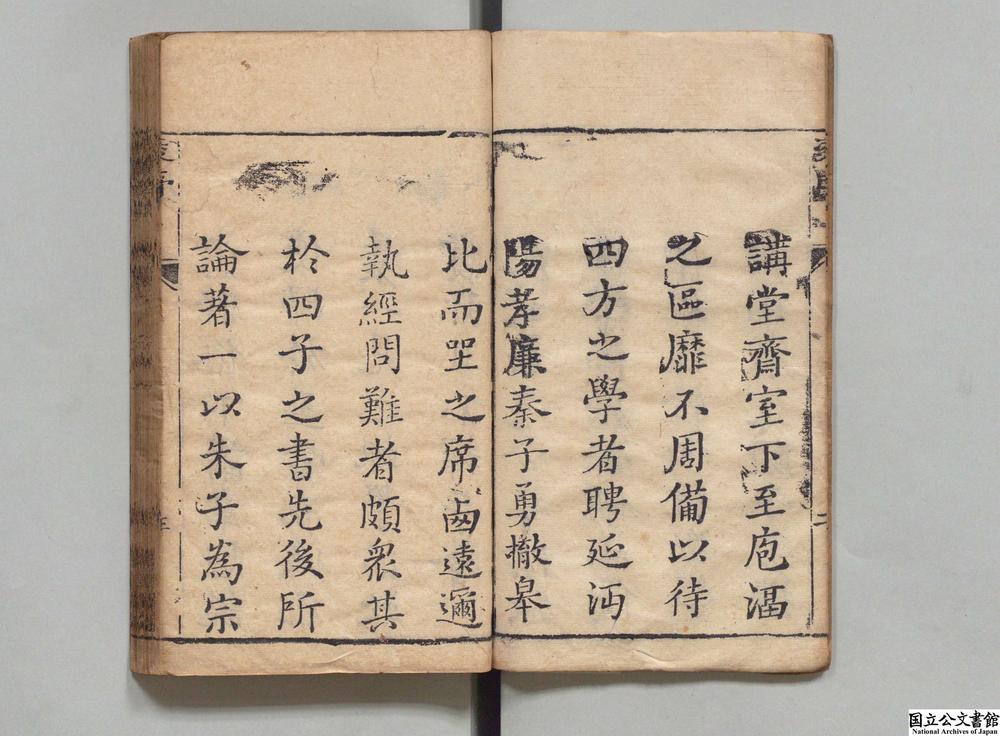 講堂齋室下至庖湢
之區靡不周備以待
四方之學者聘延沔
陽孝廉秦子勇撤皋
比而坐之席函遠邇
執經問難者頗衆其
於四子之書先後所
論著一以朱子為宗
国立公文書館
National Archives of Japan